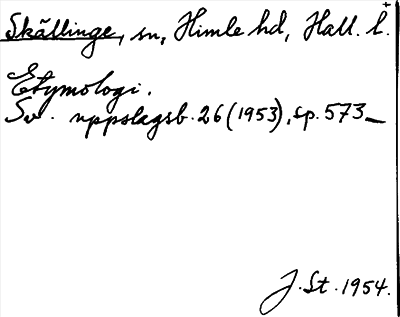 Skällinge, sn, Himle hd, Hall. l.
Etymologi.
Sv. uppslagsb. 26 (1953), sp. 573_
J. St. 1954.